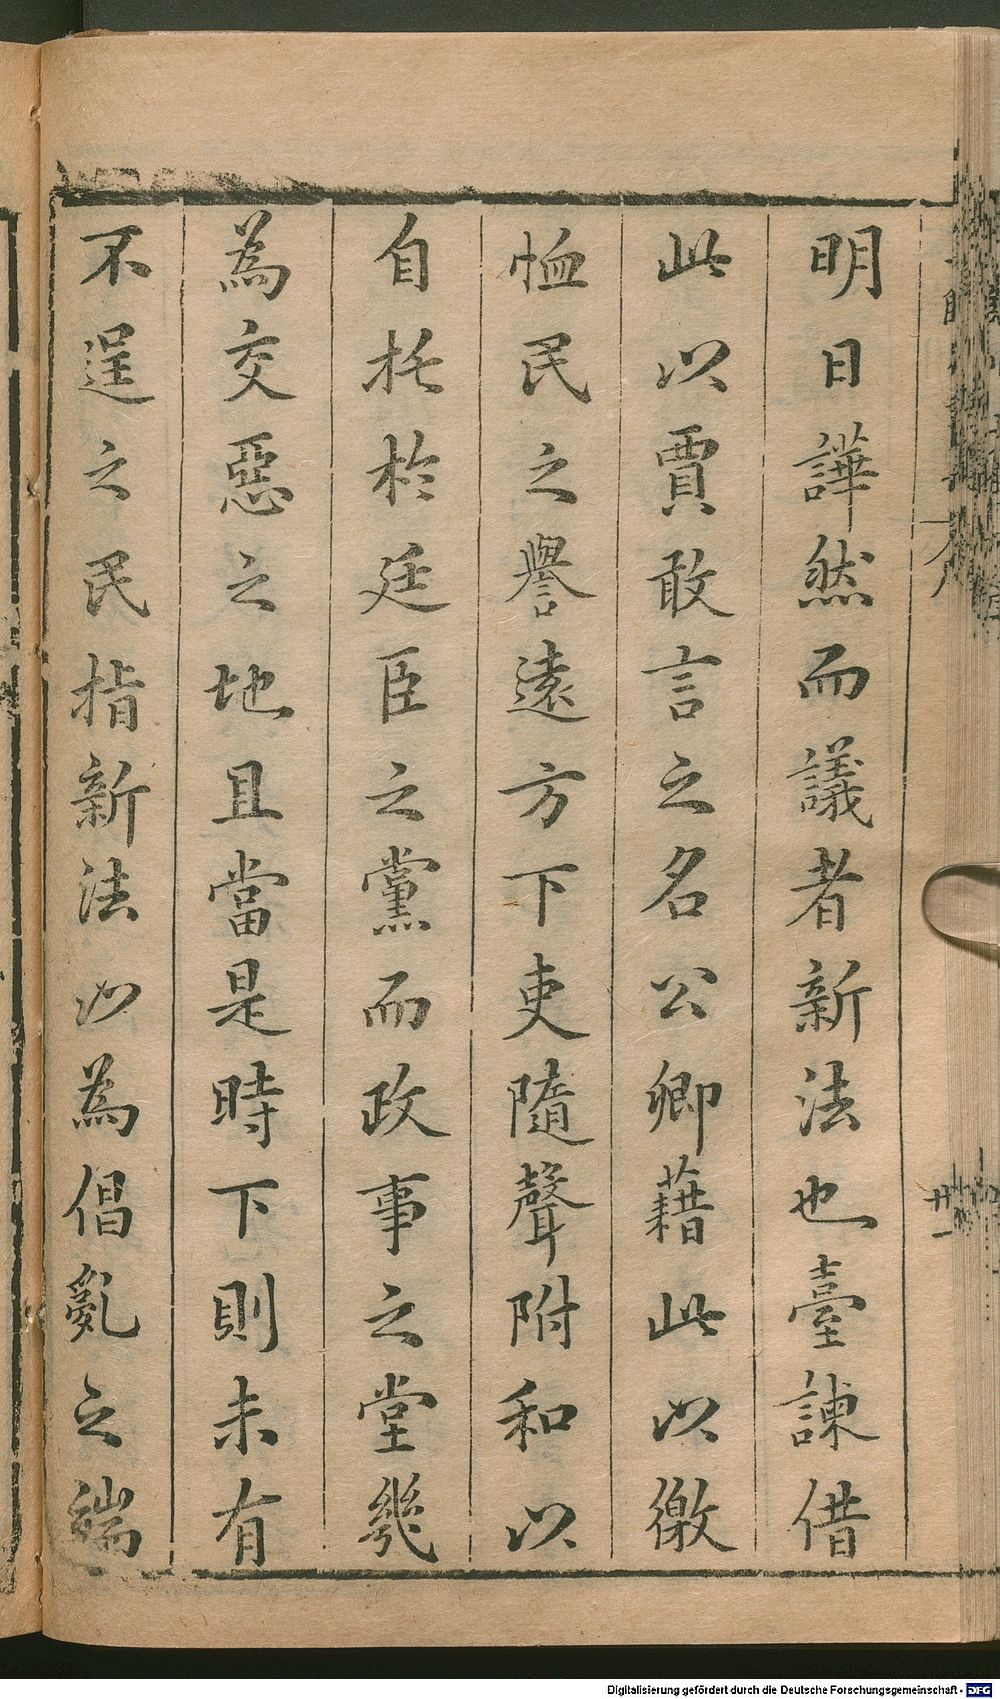 明日譁然而議者新法也臺諫借
此以賈敢言之名公卿藉此以徼
恤民之譽遠方下吏隨聲附和以
自托於廷臣之黨而政事之堂幾
為交惡之地且當是時下則未有
不逞之民指新法以為倡亂之端
廿一
Digitalisierung gefördert durch die Deutsche Forschungsgemeinschaft - DFG